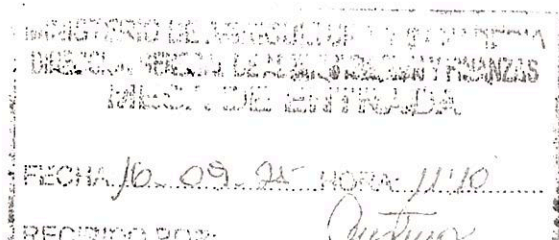 MINISTERIO DE AGRICULTURA Y GANADERIA
DIRECCION GENERAL DE ADMINISTRACION Y FINANZAS
MESA DE ENTRADA
FECHA: 16. 09. 25 HORA: 11:10
RECIBIDO POR: